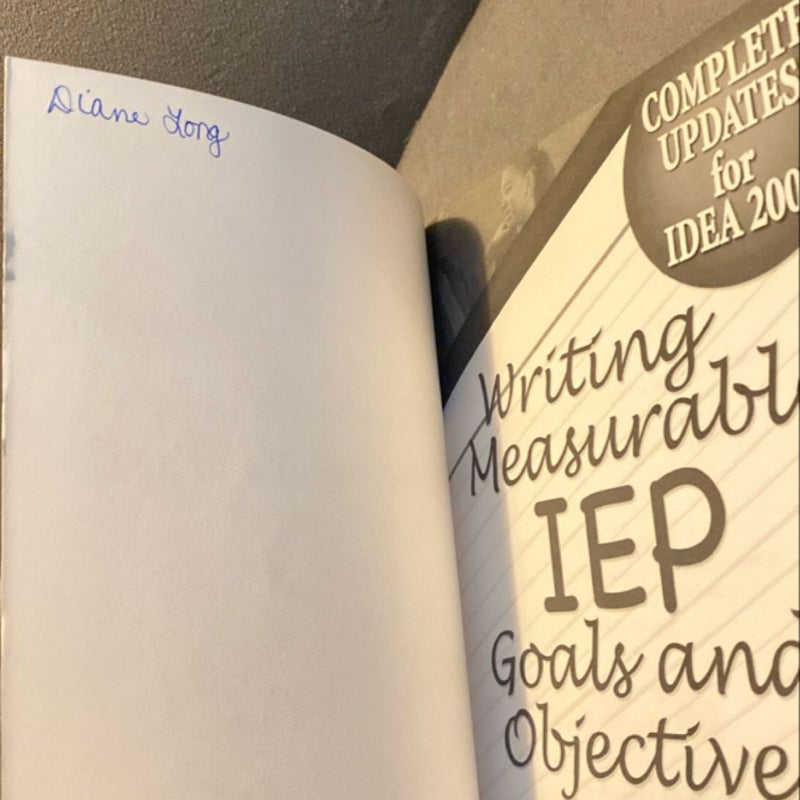 Diane Long
COMPLETE
UPDATES
for
IDEA 200
Writing
Measurabl
IEP
Goals and
Objective